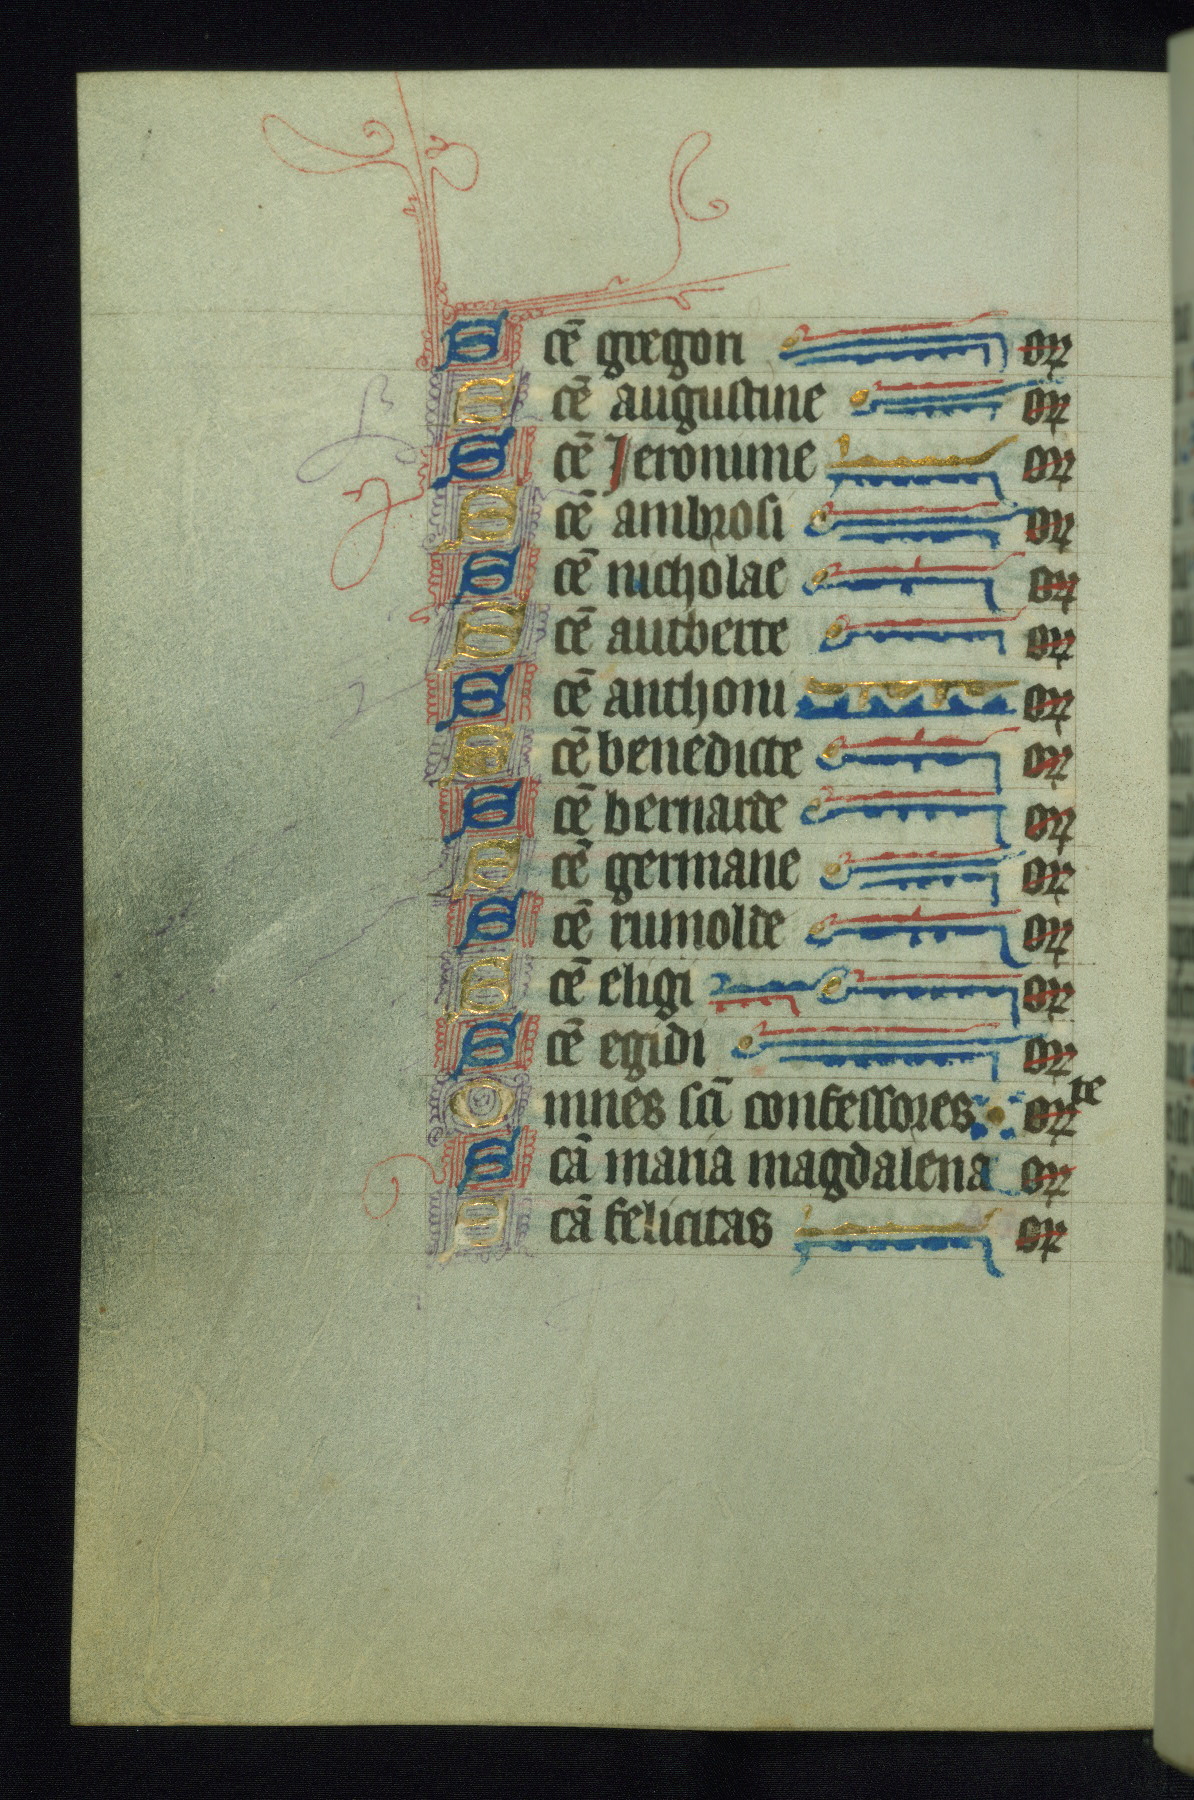 Scē gregori or
Scē augustine or
Scē Jeronime or
Scē ambrosi or
Scē nicholae or
Scē autberte or
Scē anthoni or
Scē benedicte or
Scē bernarde or
Scē germane or
Scē rumolde or
Scē eligi or
Scē egidi or
Omnes scī confessores or te
Scā maria magdalena or
Scā felicitas or